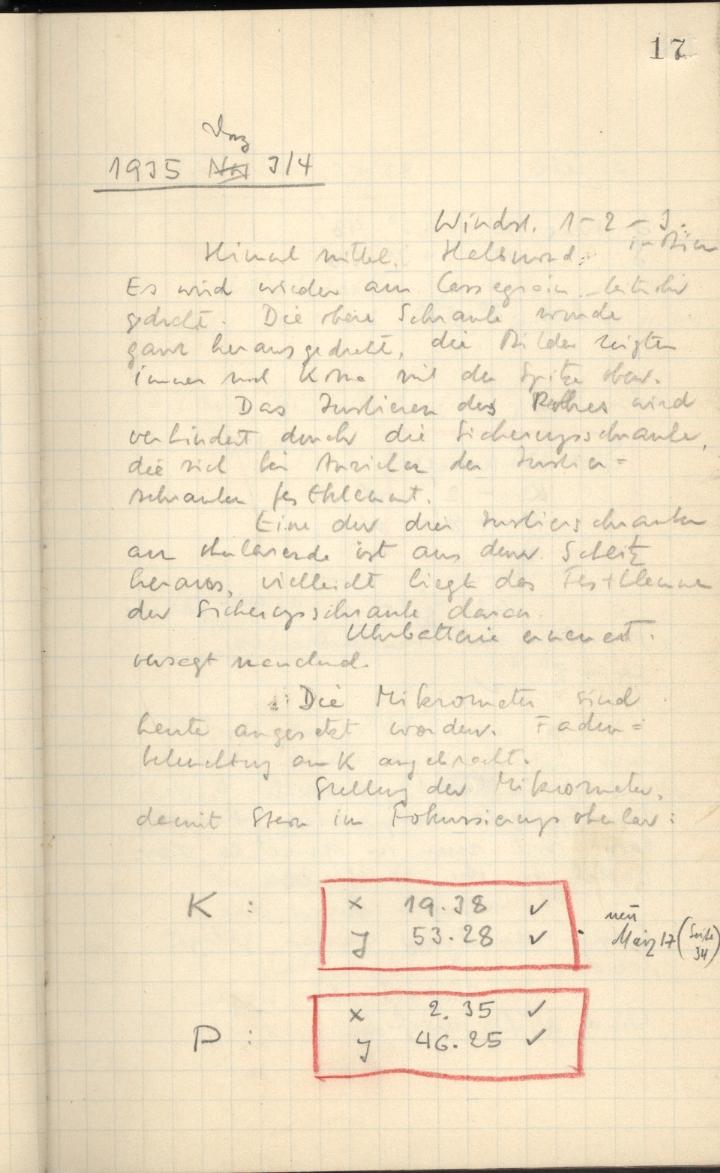 17
Dez
1935 Nov 3/4
Windst. 1-2-3.
Himmel mittel. Halbmond.
Es wird wieder am Cassegrain
gedreht. Die obere Schraube wurde
ganz herausgedreht, die Bilder zeigten
immer noch Koma mit der Spitze oben.
Das Justieren des Rohres wird
verhindert durch die Sicherungsschraube,
die sich bei Anziehen der Justier=
schrauben festklemmt.
Eine der drei Justierschrauben
am Okularende ist aus dem Schlitz
heraus, vielleicht liegt das Festklemmen
der Sicherungsschraube daran.
Uhrbatterie erneuert.
versagt manchmal.
Die Mikrometer sind
heute angesetzt worden. Faden=
beleuchtung an K angebracht.
Stellung der Mikrometer,
damit Stern im Fokussierungsokular:
K : x 19.38 ✓
y 53.28 ✓
neu
März 17 (Seite 34)
P : x 2.35 ✓
y 46.25 ✓